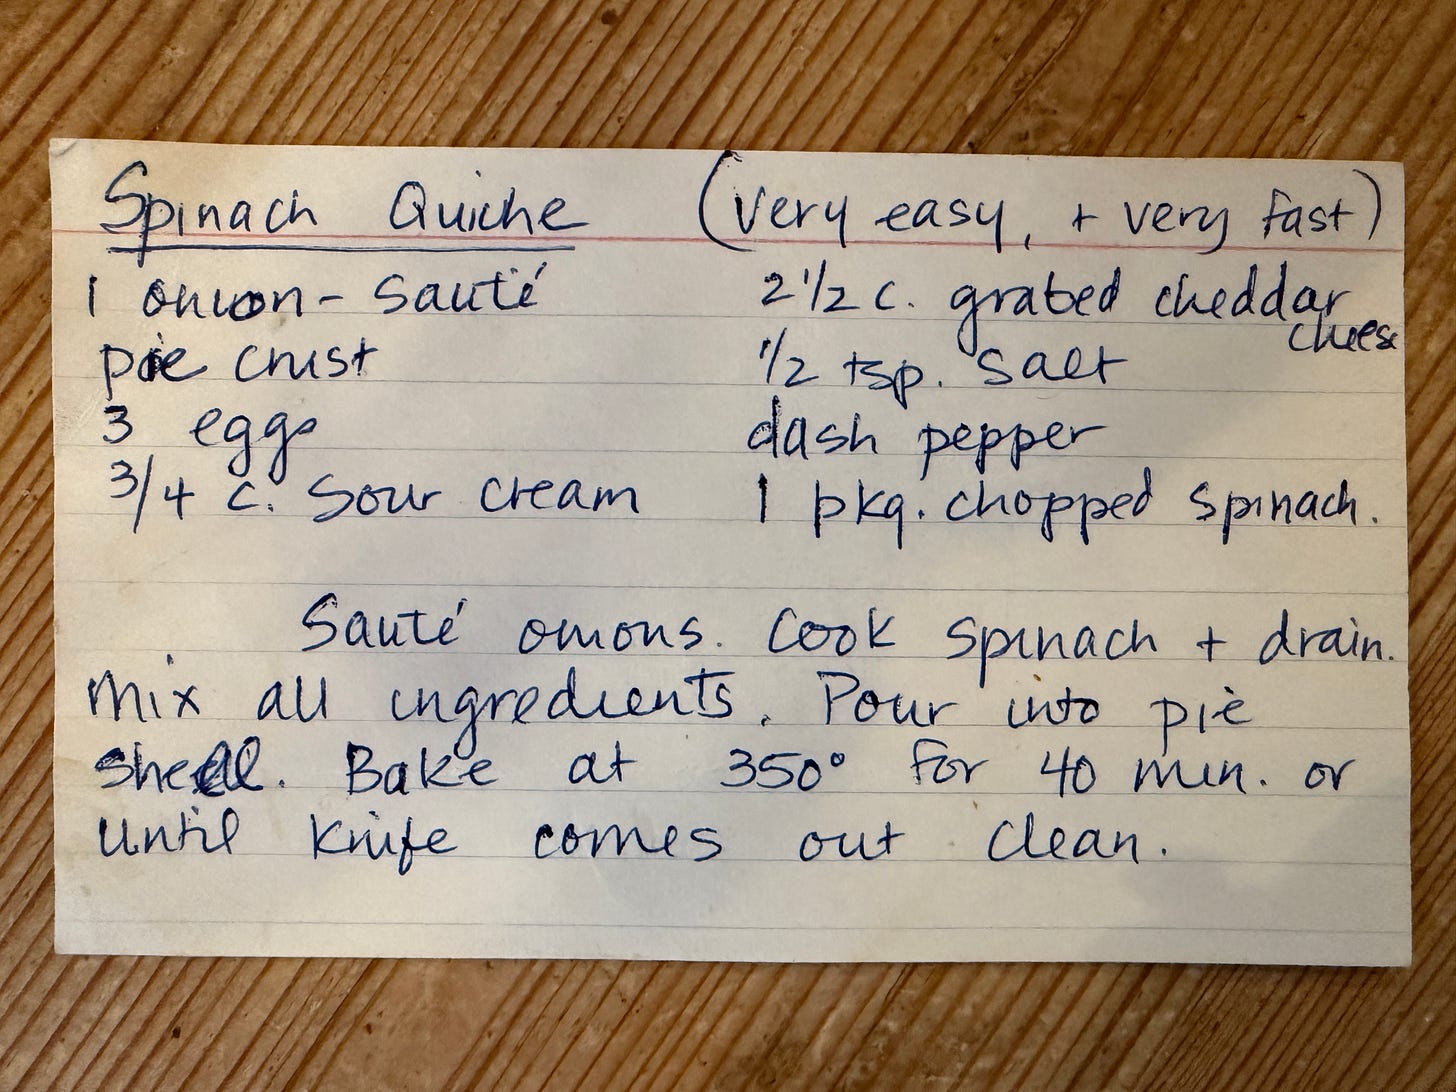 Spinach Quiche (very easy, + very fast)
1 onion - Sauté
pie crust
3 eggs
3/4 c. Sour cream
2 1/2 c. grated cheddar
cheese
1/2 tsp. Salt
dash pepper
1 pkg. chopped spinach.
Sauté onions. Cook spinach + drain.
Mix all ingredients. Pour into pie
shell. Bake at 350° for 40 min. or
until knife comes out clean.